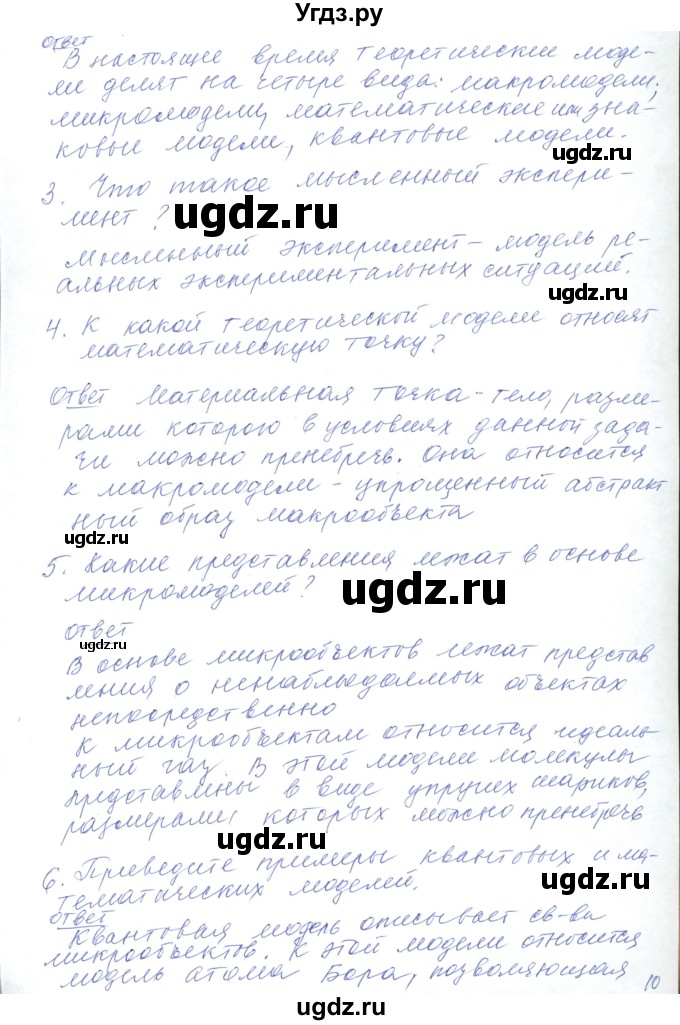 Угдз.ру
ответ
В настоящее время теоретические моде-
ли делят на четыре вида: макромодели;
микромодели, математические или зна-
ковые модели, квантовые модели.
ugdz.ru
3. Что такое мысленный экспери-
мент?
ugdz.ru
Мысленный эксперимент - модель ре-
альных экспериментальных ситуаций.
ugdz.ru
4. К какой теоретической модели относят
математическую точку?
Ответ Материальная точка - тело, разме-
рами которою в условиях данной зада-
чи можно пренебречь. Она относится
к макромодели - упрощенный абстракт
ный образ макрообъекта
ugdz.ru
5. Какие представления лежат в основе
микромоделей?
ugdz.ru
ответ
ugdz.ru
В основе микрообъектов лежат представ
ления о ненаблюдаемых объектах
непосредственно
К микрообъектам относится идеаль-
ный газ. В этой модели молекулы
представлены в виде упругих шариков,
размерами которых можно пренебречь
ugdz.ru
6. Приведите примеры квантовых и ма-
тематических моделей.
ugdz.ru
ответ
Квантовая модель описывает св-ва
микрообъектов. К этой модели относится
модель атома Бора, позволяющая
10
ugdz.ru